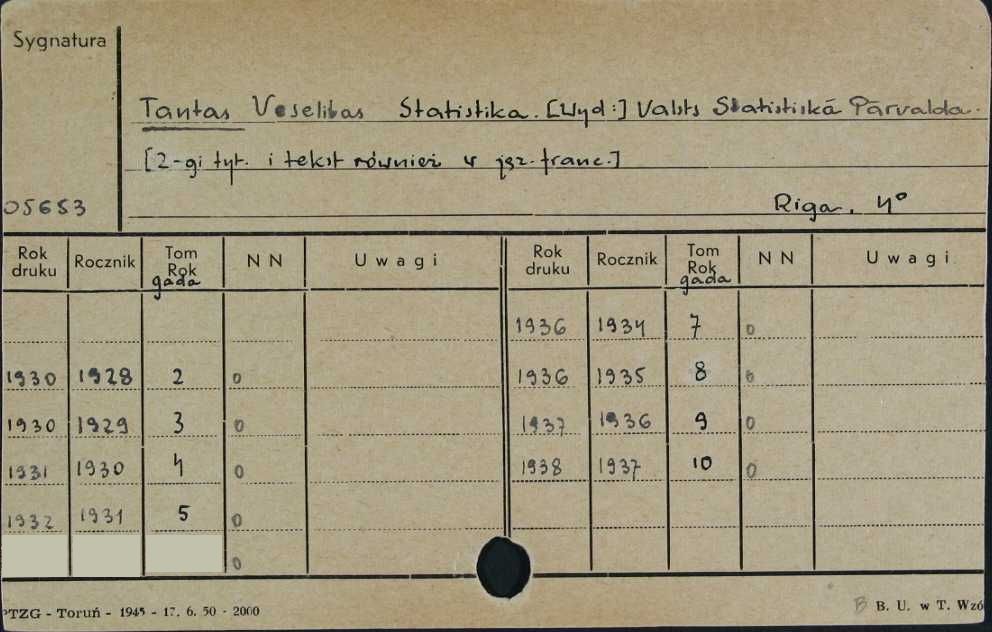 Sygnatura
Tautas Veselibas Statistika. [Wyd:] Valsts Statistiskā Pārvalda.
[2-gi tyt. i tekst również w jęz. franc.]
05653
Riga. 4°
Rok druku Rocznik Tom Rok gada N N Uwagi Rok druku Rocznik Tom Rok gada N N Uwagi
1936 1934 7 0
1930 1928 2 0 1936 1935 8 0
1930 1929 3 0 1937 1936 9 0
1931 1930 4 0 1938 1937 10 0
1932 1931 5 0
0
PTZG - Toruń - 1945 - 17. 6. 50 - 2000 B B. U. w T. Wzó